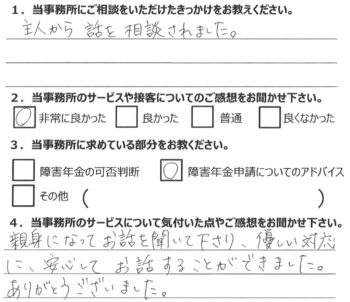 1．当事務所にご相談をいただけたきっかけをお教えください。
主人から話を相談されました。
2．当事務所のサービスや接客についてのご感想をお聞かせ下さい。
非常に良かった 良かった 普通 良くなかった
3．当事務所に求めている部分をお教えください。
障害年金の可否判断 障害年金申請についてのアドバイス
その他（ ）
4．当事務所のサービスについて気付いた点やご感想をお聞かせ下さい。
親身になってお話を聞いて下さり、優しい対応
に、安心して お話することができました。
ありがとうございました。